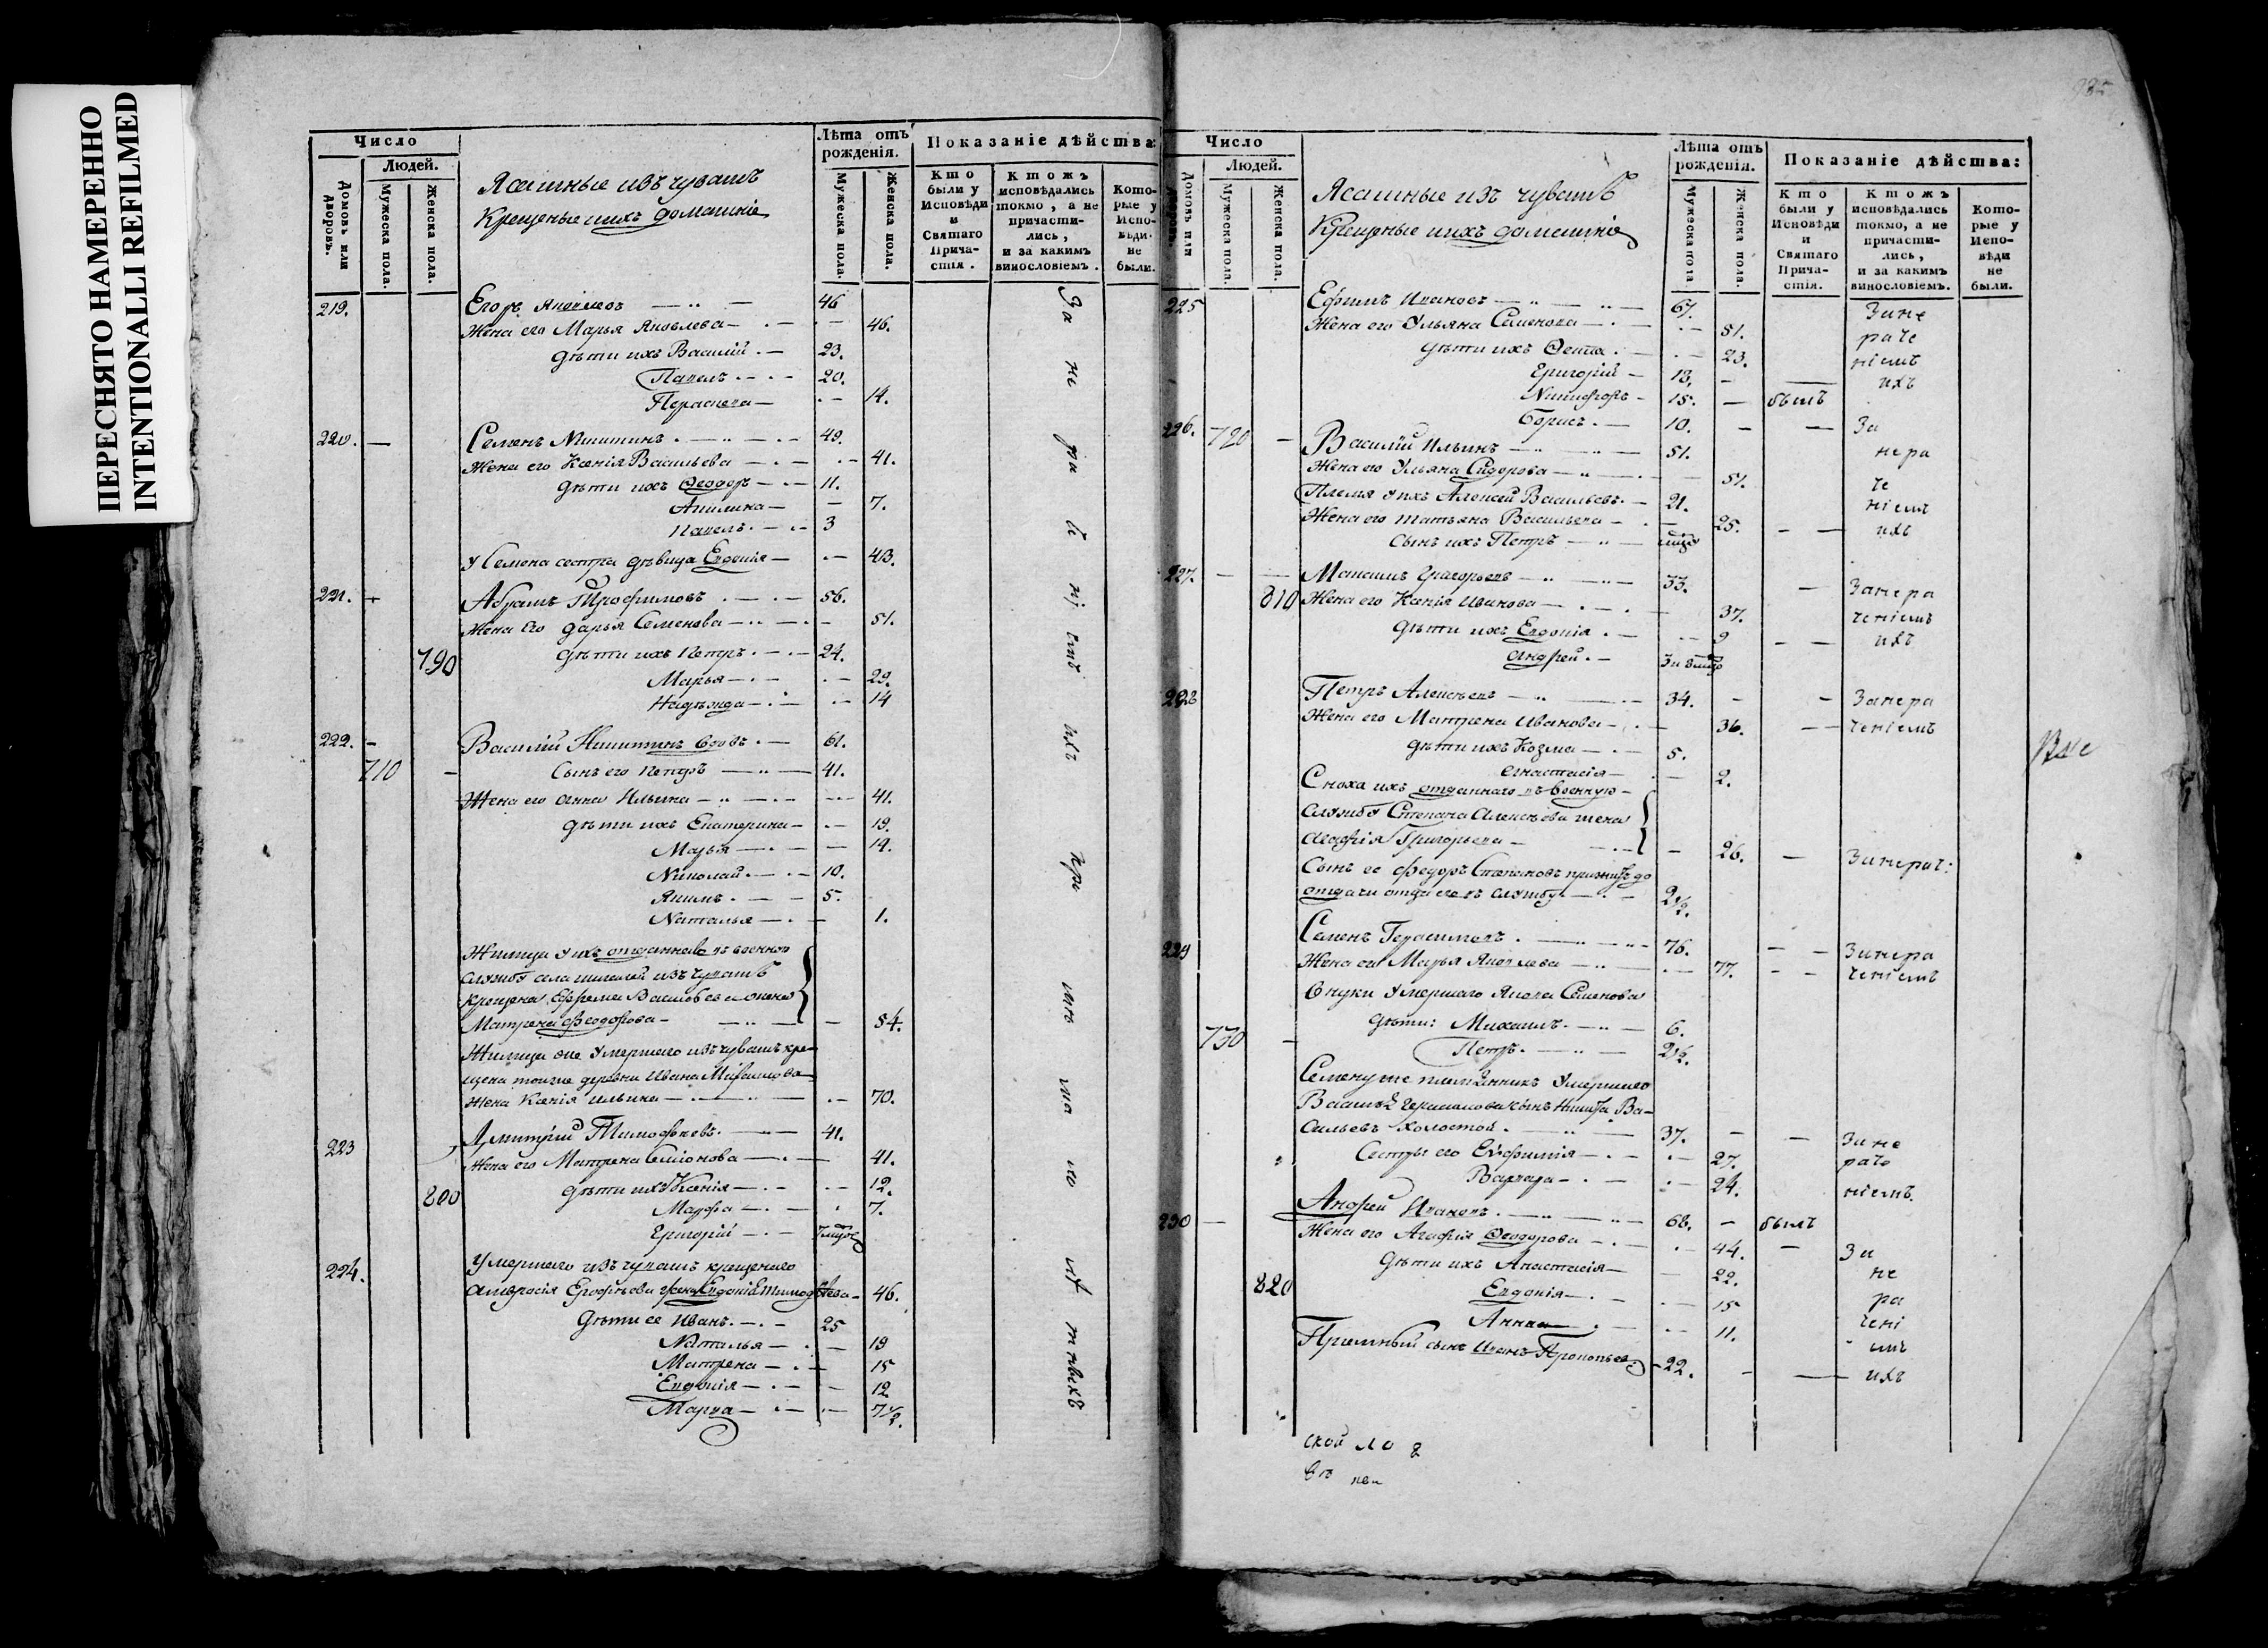 ПЕРЕСНЯТО НАМЕРЕННО
INTENTIONALLI REFILMED
Число
Людей.
Домовъ или дворовъ.
Мужеска пола.
Женска пола.
Ясашные изъ чувашъ
Крещеные и ихъ домашніе
Лѣта отъ рожденія.
Мужеска пола.
Женска пола.
Показаніе дѣйства:
Кто были у Исповѣди и Святаго Причастія.
Ктожъ исповѣдались токмо, а не причастились, и за какимъ винословіемъ.
Которые у Исповѣди не были.
219. Егоръ Яковлевъ 46
Жена его Марья Яковлева 46.
дѣти ихъ Василій 23.
Павелъ 20.
Параскева 14.
220. Семенъ Никитинъ 49.
Жена его Ксенія Васильева 41.
дѣти ихъ Ѳеодоръ 11.
Акилина 7.
Павелъ 3
У Семена сестра дѣвица Евдокія 43.
221. Абрамъ Трофимовъ 56.
Жена его Дарья Семенова 51.
790 дѣти ихъ Петръ 24.
Марья 29.
Надежда 14
222. Василій Никитинъ вдовъ 61.
710 Сынъ его Петръ 41.
Жена его Анна Ильина 41.
дѣти ихъ Екатерина 19.
Марья 14.
Николай 10.
Якимъ 5.
Наталья 1.
Жилица у ихъ отданнаго въ военною
службу села изъ чувашъ
крещена Ефрема Васильева жена
Матрена Ѳеодорова 54.
Жилица же умершаго изъ чувашъ кре-
щена тойже деревни Ивана Михайлова
жена Ксенія Ильина 70.
223 Дмитрій Тимофѣевъ 41.
Жена его Матрена Семионова 41.
800 дѣти ихъ Ксенія 12.
Марфа 7.
Григорій 7 мцовъ
224. Умершаго изъ чувашъ крещенаго
Амвросія Ерофѣева жена Евдокія Тимофѣева 46.
дѣти ее Иванъ 25
Наталья 19
Матрена 15
Евдокія 12
Марѳа 7 1/2.
За не ра че ні емъ ихъ при
Число
Людей.
Домовъ или дворовъ.
Мужеска пола.
Женска пола.
Ясашные изъ чувашъ
Крещеные и ихъ домашніе
Лѣта отъ рожденія.
Мужеска пола
Женска пола.
Показаніе дѣйства:
Кто были у Исповѣди и Святаго Причастія.
Ктожъ исповѣдались токмо, а не причастились, и за какимъ винословіемъ.
Которые у Исповѣди не были.
225 Ефимъ Ивановъ 67. За не
Жена его Ульяна Семенова 51. раче
дѣти ихъ Ѳекла 23. ніемъ
Григорій 18. ихъ
Никифоръ 15. былъ
Борисъ 10. За
226. 720 Василій Ильинъ 51. нера
Жена его Ульяна Сидорова 51. че
Племя у ихъ Алексей Васильевъ 21. ніемъ
Жена его Татьяна Васильева 25. ихъ
Сынъ ихъ Петръ
227. Максимъ Григорьевъ 33. За нера
810 Жена его Ксенія Иванова 37. ченіемъ
дѣти ихъ Евдокія 9 ихъ
Андрей
228 Петръ Алексѣевъ 34. За нера
Жена его Матрена Иванова 36. ченіемъ
дѣти ихъ Козма 5.
Анастасія 2.
Сноха ихъ отданнаго въ военную
службу Степана Алексѣева жена
Агафія Григорьева 26. За нерач:
Сынъ ее Федоръ Степановъ прижитъ до
отдачи отца его въ службу 2 1/2.
229 Семенъ Герасимовъ 76. За нера
Жена его Марья Яковлева 77. ченіемъ
Внуки умершаго Якова Семенова
730 дѣти: Михаилъ 6.
Петръ 2 1/2.
Семену же племянникъ умершаго
Василья Герасимова сынъ Никита Ва-
сильевъ холостой 37. За не
Сестры его Евфимія 27. раче
Варвара 24. ніемъ.
230 Андрей Ивановъ 68. былъ
Жена его Агафія Ѳеодорова 44. За
дѣти ихъ Анастасія 22. не
820 Евдокія 15 ра
Анна 11. чені
Пріемный сынъ Иванъ Прокопьевъ 22. емъ ихъ